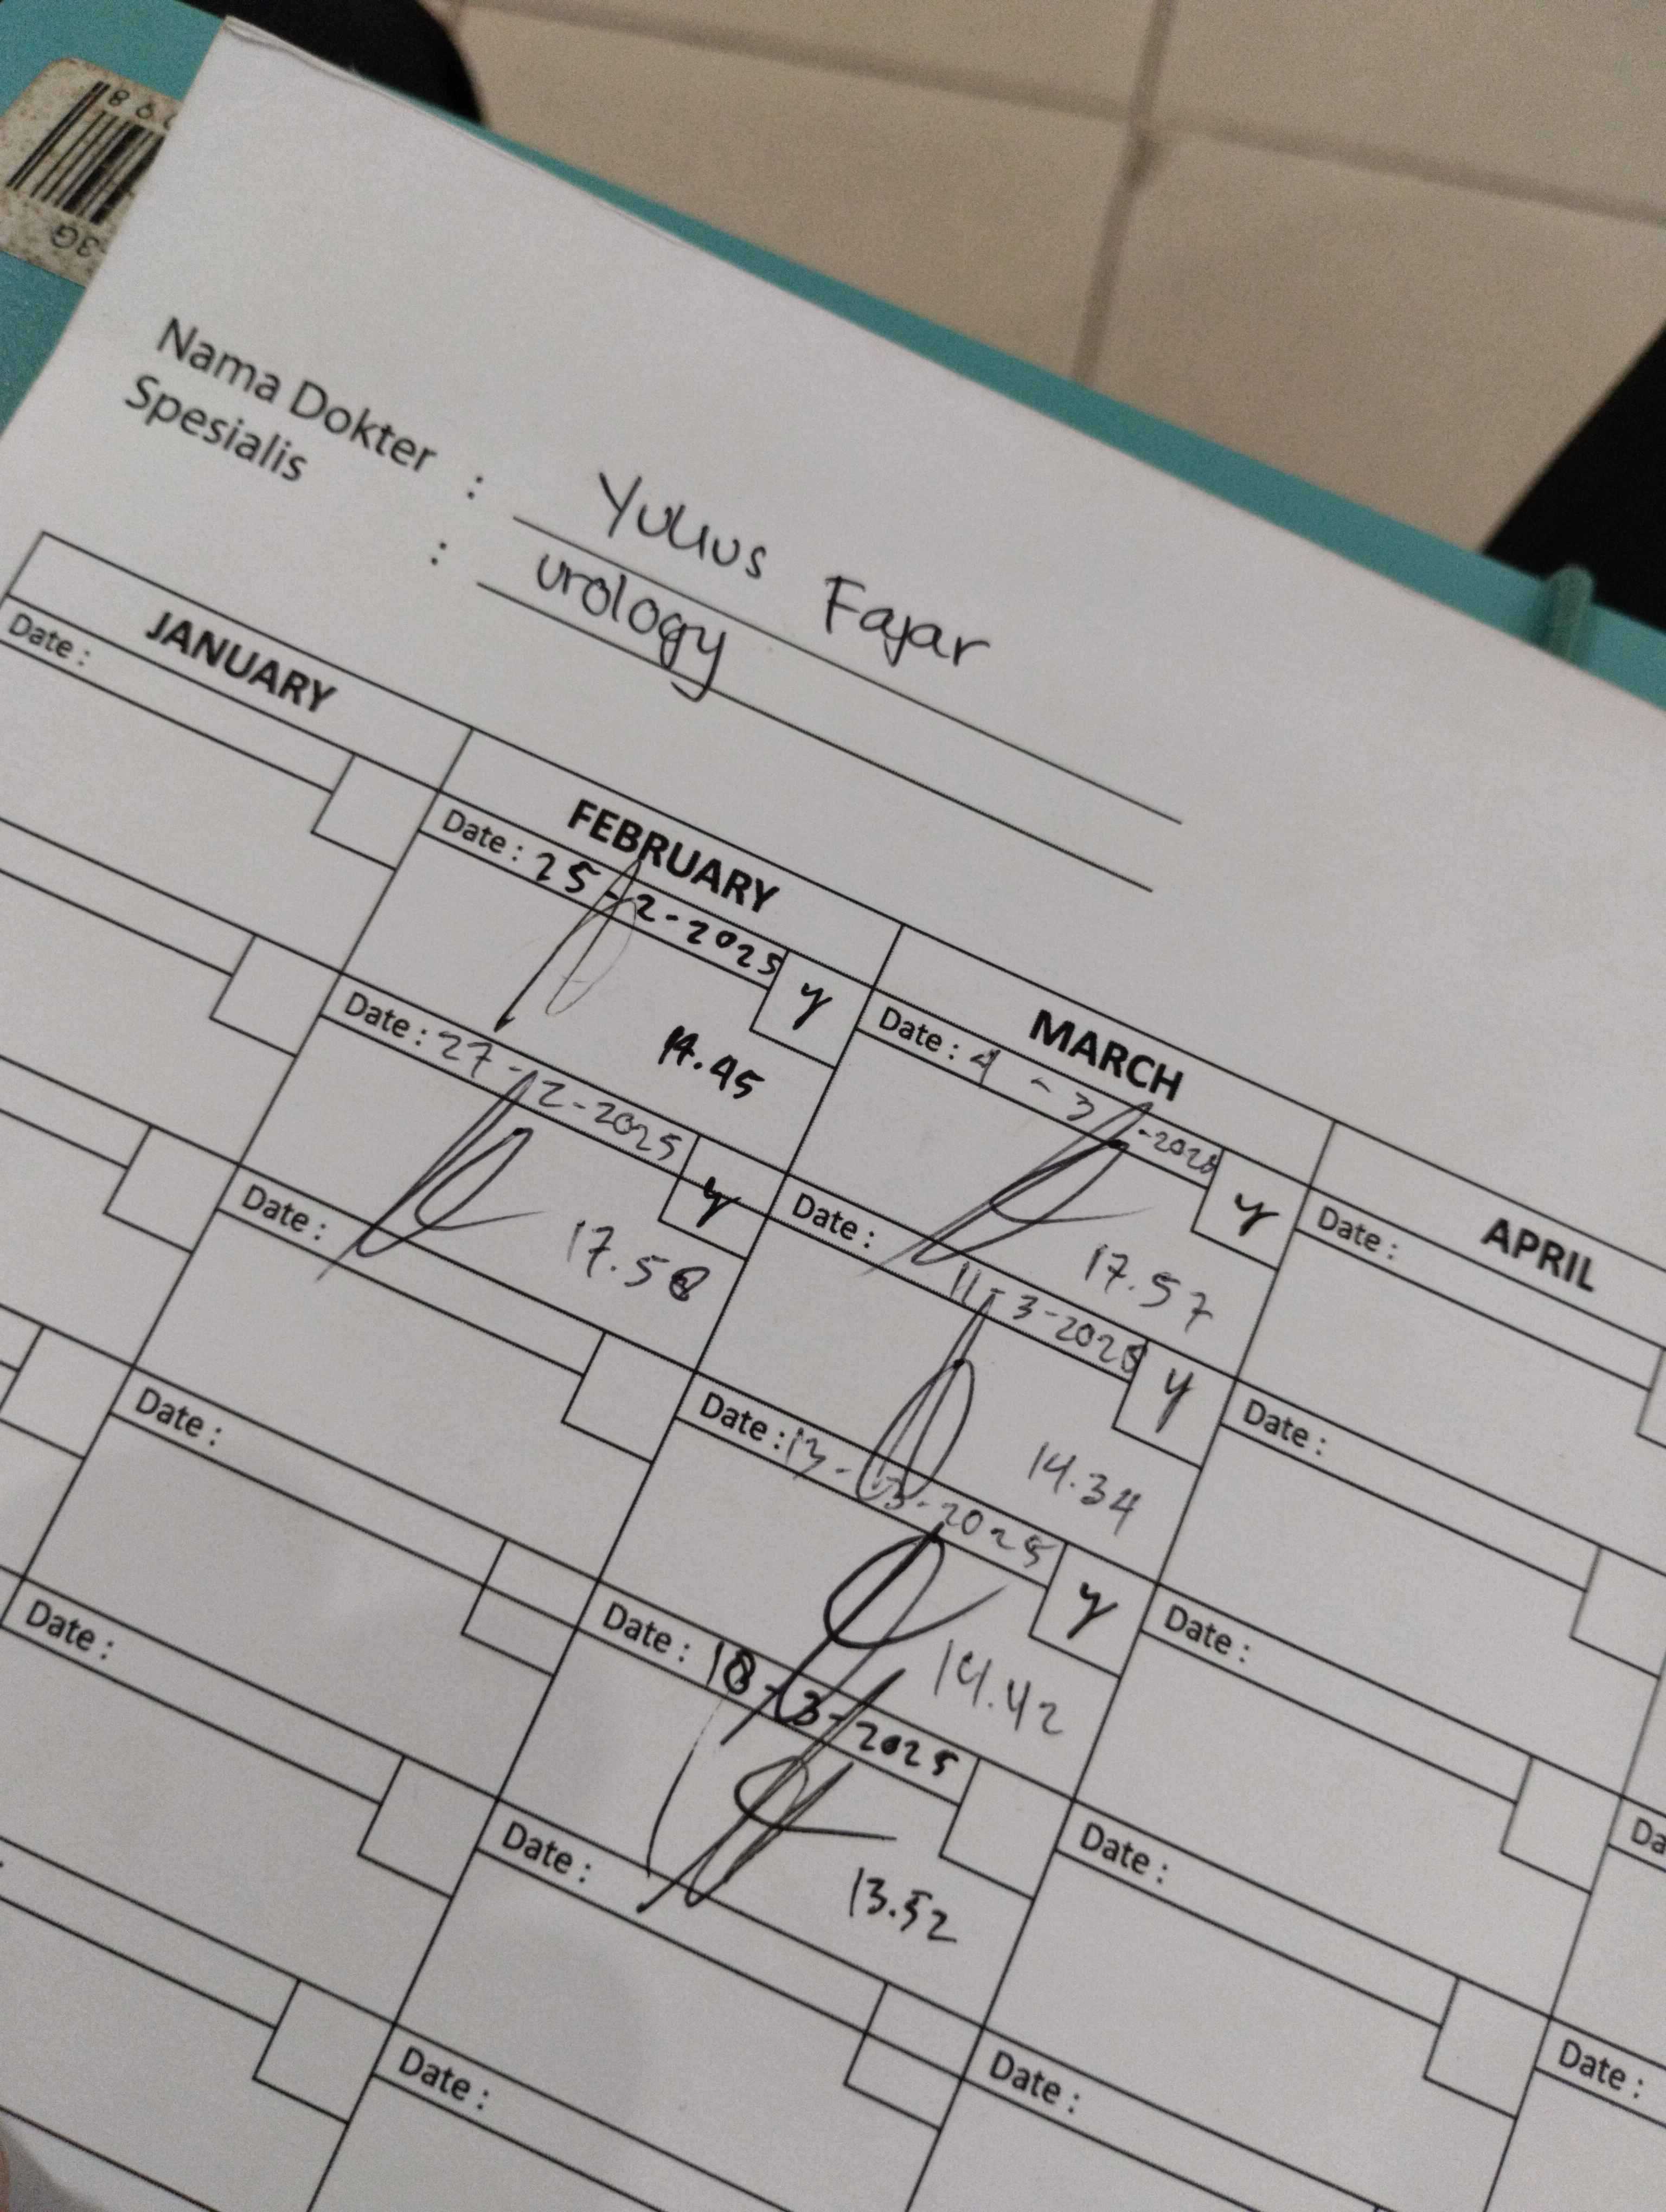 Nama Dokter : Yulius Fajar
Spesialis : urology
JANUARY
FEBRUARY
MARCH
APRIL
Date :
Date : 25-2-2025 y
14.45
Date : 4-3-2025 y
17.57
Date :
Date : 27-2-2025 y
17.58
Date : 11-3-2025 y
14.34
Date :
Date :
Date : 13-3-2025 y
14.42
Date :
Date :
Date : 18-3-2025
13.52
Date :
Date :
Date :
Date :
Date :
Date :